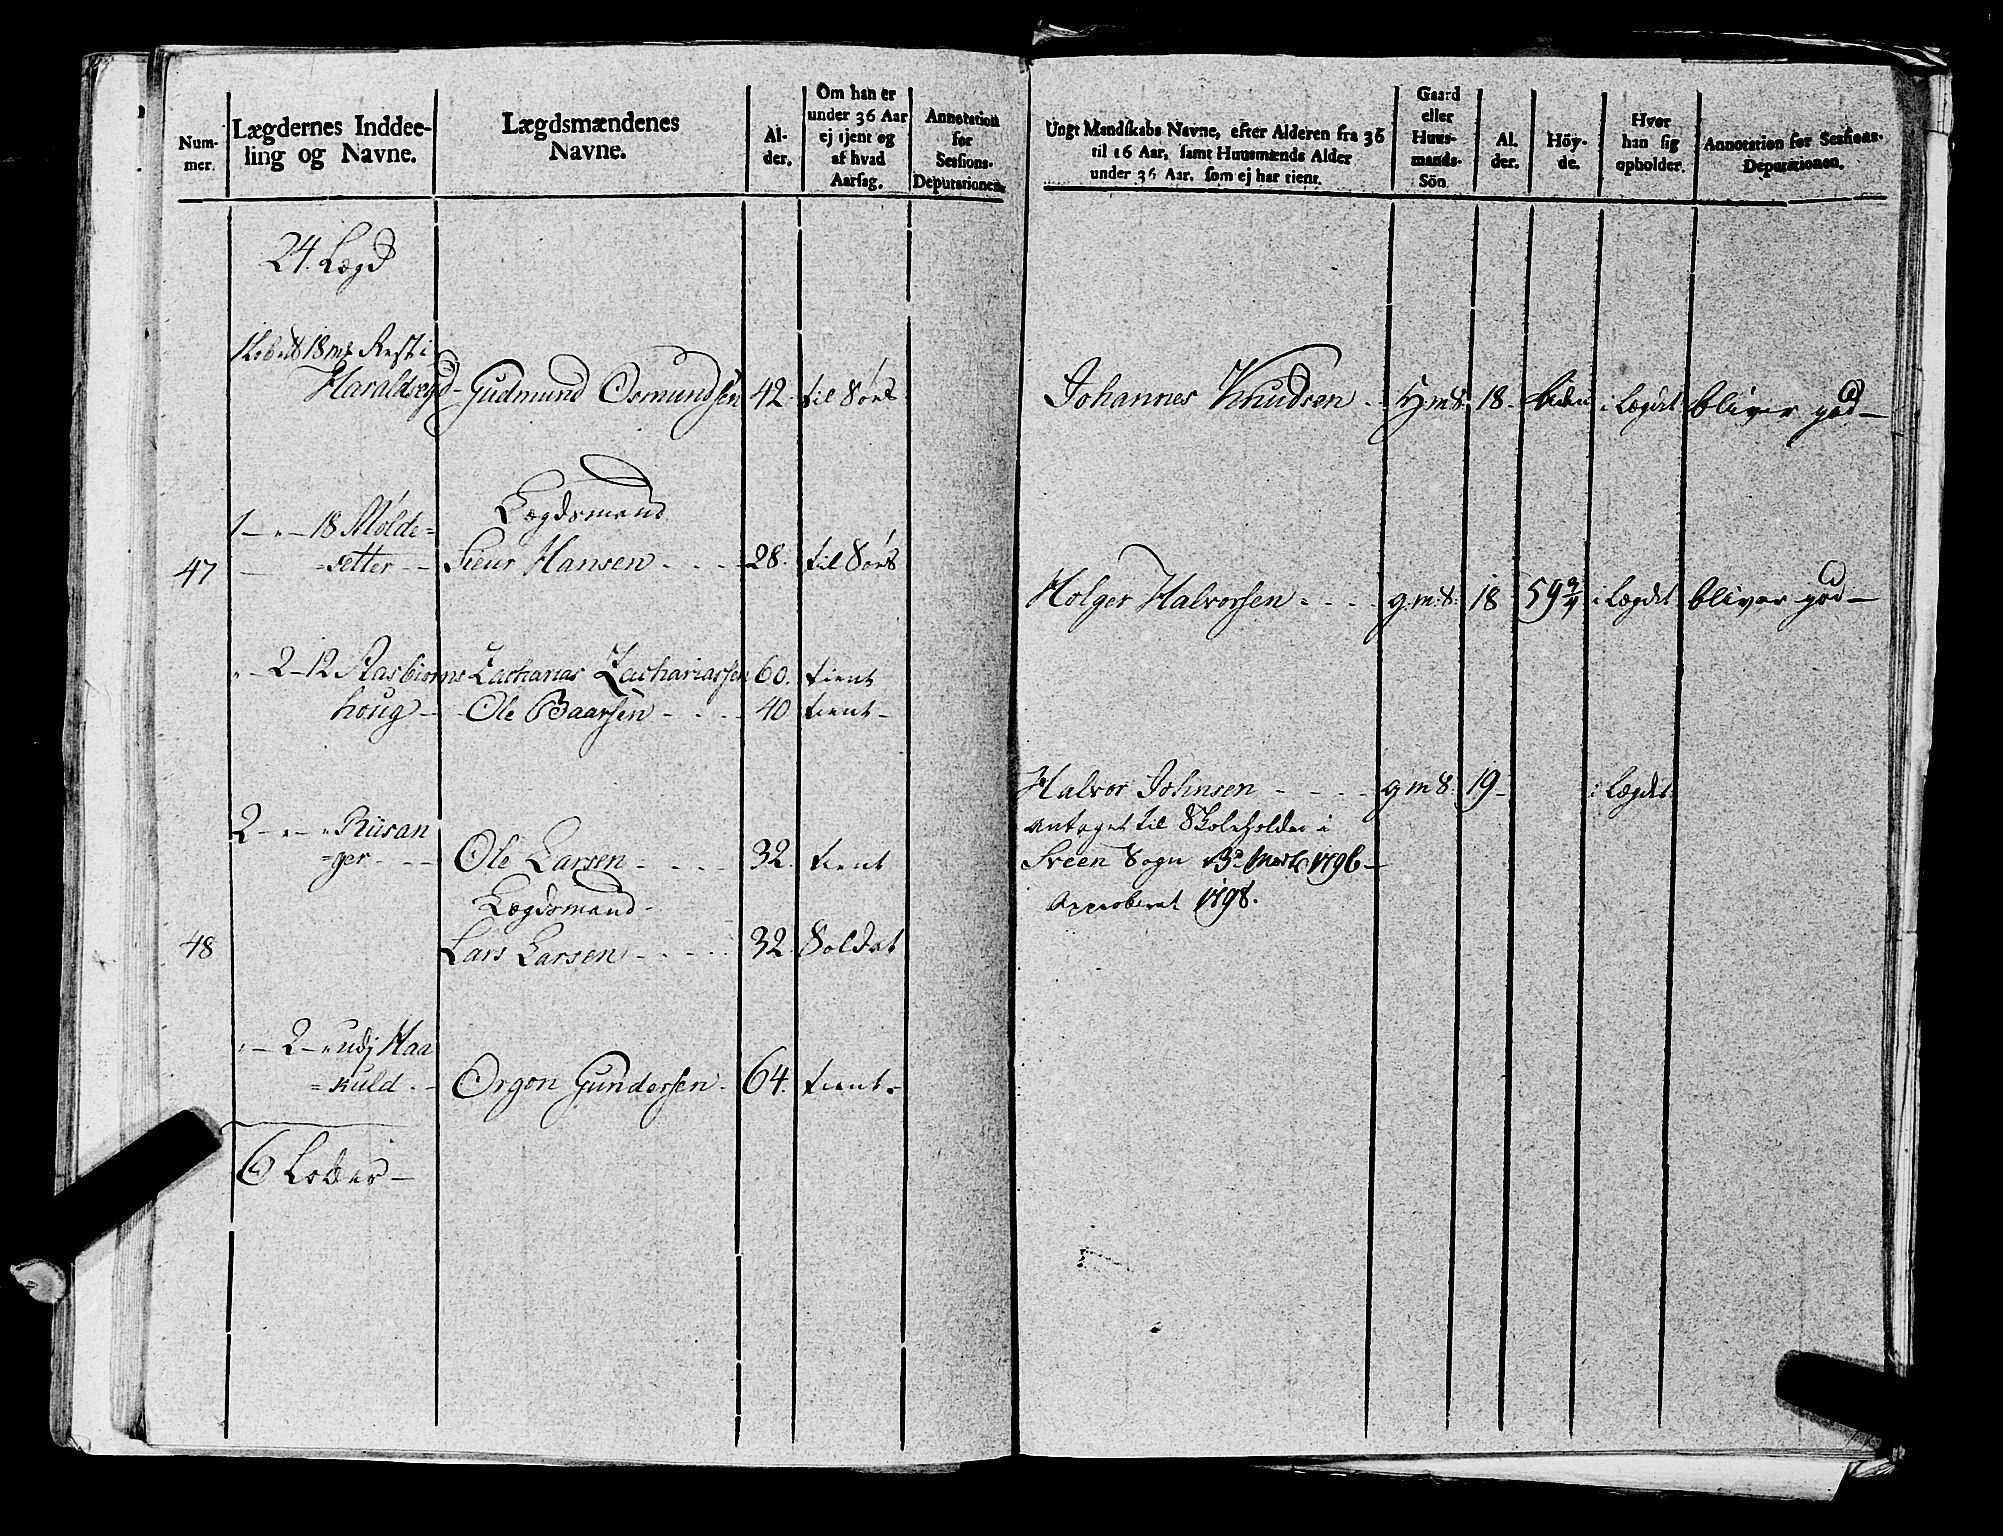 Num-
mer.
Lægdernes Inddee-
ling og Navne.
Lægdsmændenes
Navne.
Al-
der.
Om han er
under 36 Aar
ej tjent og
af hvad
Aarsag.
Annotation
for
Sessions-
Deputationen.
24. Lægd
18 mk Rest i
Haraldseyd - Gudmund Osmundsen 42. til Søes
Lægdsmand
1 - " - 18 Molde=
47 =setter - - Sieur Hansen - - - - 28. til Søes
" - 2 - 12 Aasbiorns Zacharias Zachariassen 60. tient
houg - - Ole Baarsen - - - - 40 tient -
2 - " - " Riisan
=ger - - - Ole Larsen - - - - 32. tient
Lægdsmand -
48 Lars Larsen - - - - - 32. Soldat
" - 2 - " udj Haa
=kuld - - Orgon Gundersen - 64. tient -
6 Lodder -
Ungt Mandskabs Navne, efter Alderen fra 36
til 16 Aar, samt Huusmænds Alder
under 36 Aar, som ej har tient.
Gaard
eller
Huus-
mands-
Sön
Al.
der.
Höy-
de.
Hvor
han sig
opholder.
Annotation for Sessions-
Deputationen.
Johannes Knudsen - Hm S. 18 - liden i Lægdet bliver god -
Holger Halvorsen - - - - g:m:S: 18 59 3/4 i Lægdet bliver god -
Halvor Johnsen - - - - g m S. 19 - i Lægdet
antaget til Skoleholder i
Sveen Sogn 13de Marti 1796 -
Approberet 1798.